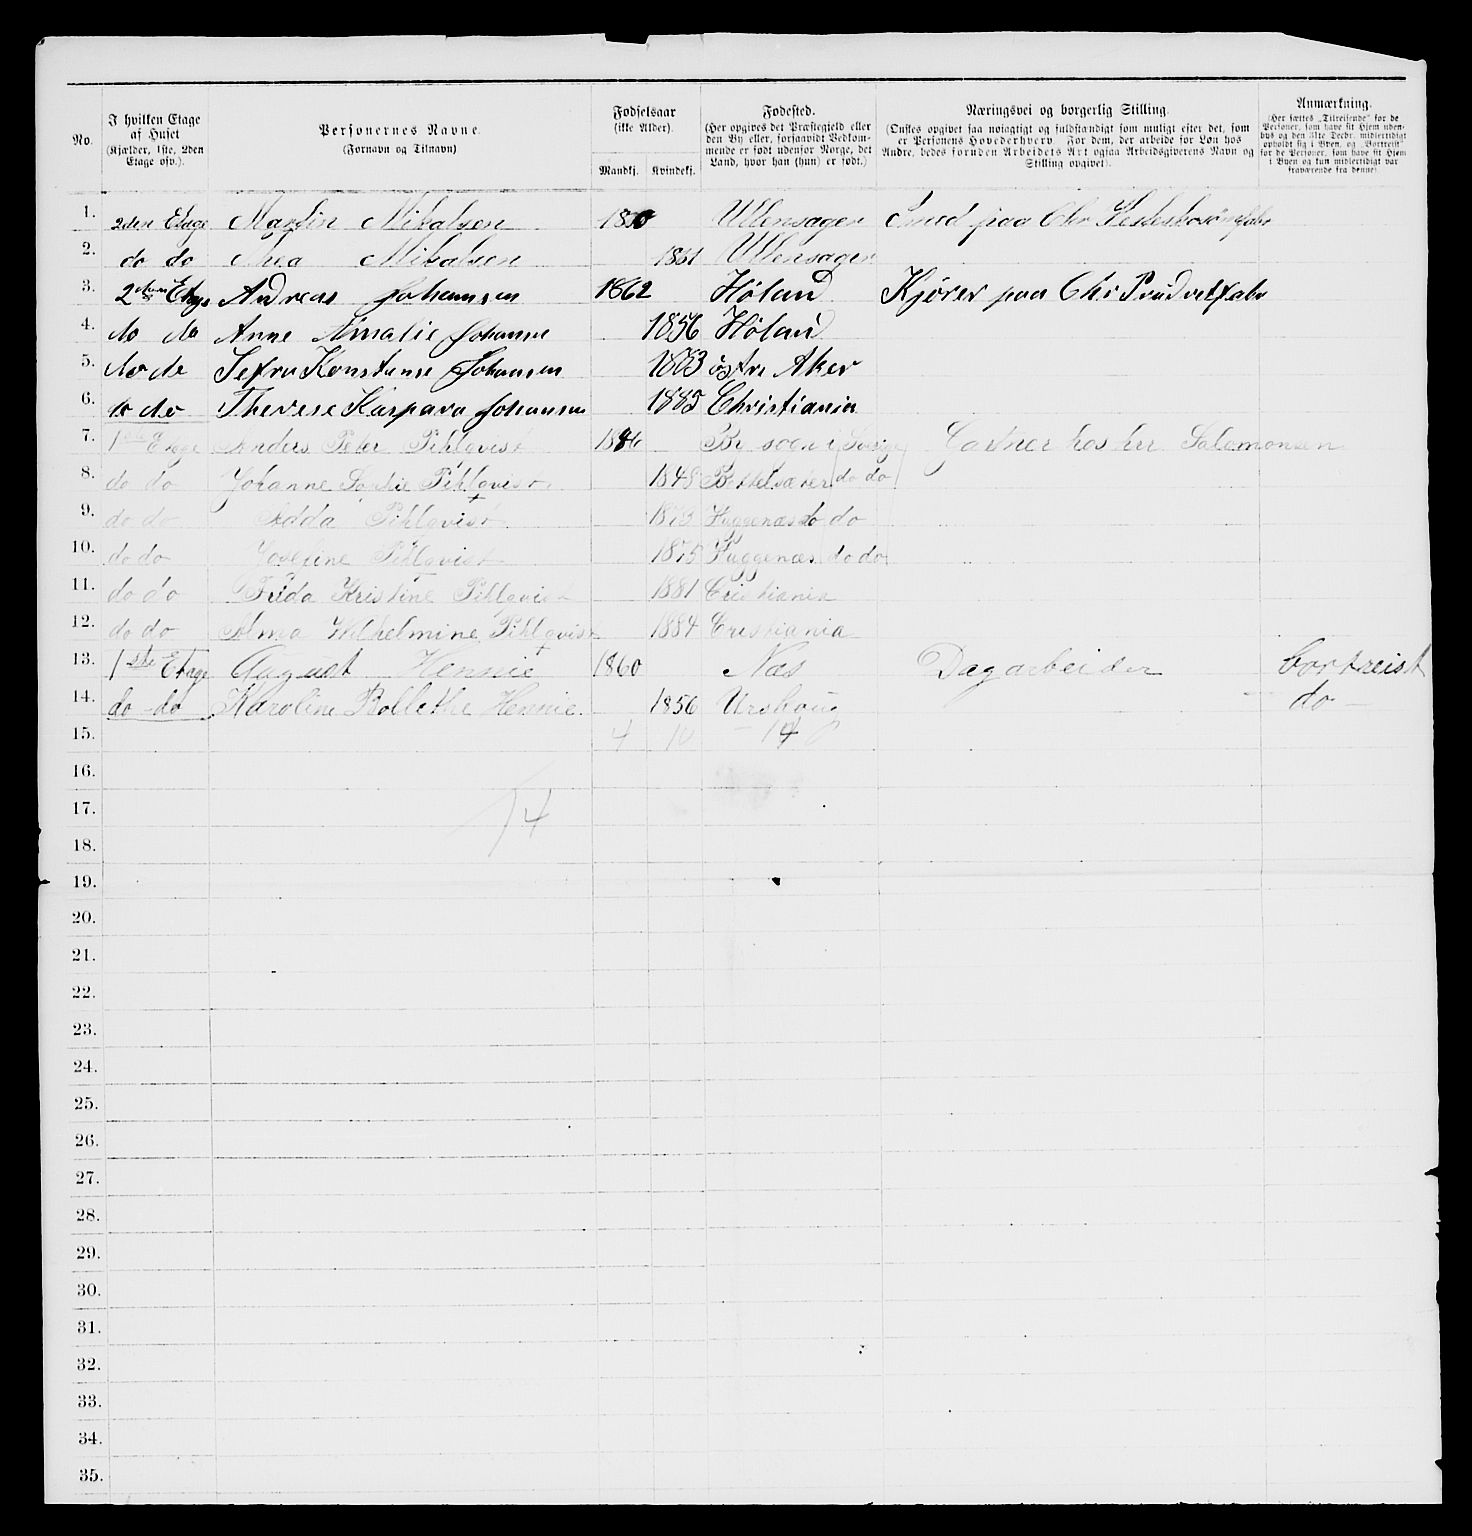 No.
I hvilken Etage
af Huset
(Kjælder, 1ste, 2den
Etage osv.).
Personernes Navne.
(Fornavn og Tilnavn)
Fødselsaar
(ikke Alder).
Mandkj.
Kvindekj.
Fødested.
(Her opgives det Præstegjeld eller
den By eller, forsaavidt Vedkom-
mende er født udenfor Norge, det
Land, hvor han (hun) er født.)
Næringsvei og borgerlig Stilling.
(Ønskes opgivet saa nøiagtigt og fuldstændigt som muligt efter det, som
er Personens Hovederhverv. For dem, der arbeide for Løn hos
Andre, bedes foruden Arbeidets Art ogsaa Arbeidsgiverens Navn og
Stilling opgivet).
Anmærkning.
(Her sættes „Tilreisende" for de
Personer, som have sit Hjem uden-
bys og den 31te Decbr. midlertidigt
opholdt sig i Byen, og „Bortreist"
for de Personer, som have sit Hjem
i Byen og kun midlertidigt var
fraværende fra denne).
1. 2den Etage Martin Mikalsen 1850 Ullensager Smed paa Chr
2. do do Thea Mikalsen 1861 Ullensager
3. 2den Etage Andreas Johansen 1862 Høland Kjører paa Chr
4. do do Anne Amalie Johansen 1856 Høland
5. do do Konstanse Johansen 1883 østre Aker
6. do do Therese Kaspara Johansen 1885 Christiania
7. 1ste Etage Anders Peter Pihlqvist 1846 By sogn i Sverige Gartner hos her Salomonsen
8. do do Johanne Sofie Pihlqvist 1848 do do
9. do do Adda Pihlqvist 1873 Huggenæs do do
10. do do Josefine Pihlqvist 1875 Huggenæs do do
11. do do Frida Kristine Pihlqvist 1881 Cristiania
12. do do Alma Wilhelmine Pihlqvist 1884 Cristiania
13. 1ste Etage August Hennie 1860 Næs Dagarbeider bortreist
14. do - do Karoline Bollethe Hennie 1856 Urskoug do
15. 4 10 - 14
16.
17. 14
18.
19.
20.
21.
22.
23.
24.
25.
26.
27.
28.
29.
30.
31.
32.
33.
34.
35.